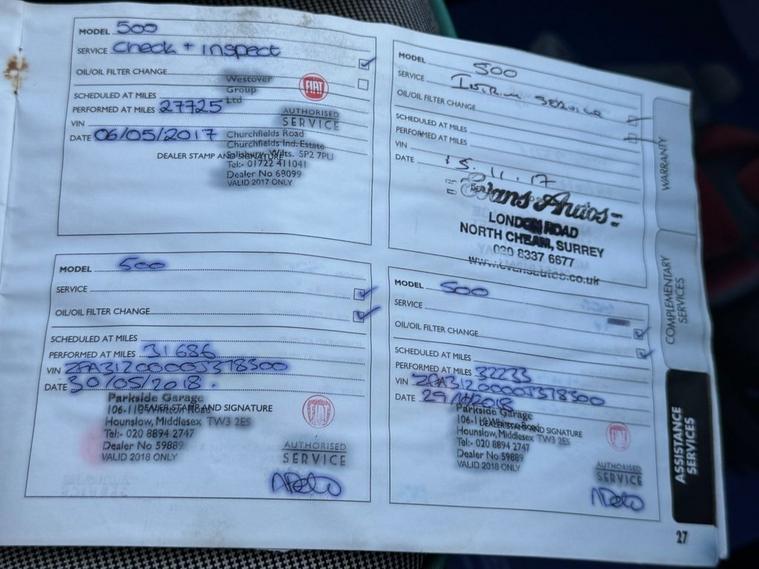 MODEL 500
SERVICE Check + Inspect
OIL/OIL FILTER CHANGE
SCHEDULED AT MILES
PERFORMED AT MILES 27725
VIN
DATE 06/05/2017
DEALER STAMP AND SIGNATURE
Westover
Group
Ltd
Churchfields Road
Churchfields Ind. Estate
Salisbury, Wilts. SP2 7PU
Tel:- 01722 411041
Dealer No 69099
VALID 2017 ONLY
FIAT
AUTHORISED
SERVICE
MODEL 500
SERVICE SERVICE
OIL/OIL FILTER CHANGE
SCHEDULED AT MILES
PERFORMED AT MILES
VIN
DATE 15.11.17
Evans Autos
LONDON ROAD
NORTH CHEAM, SURREY
020 8337 6677
www.evansautos.co.uk
MODEL 500
SERVICE
OIL/OIL FILTER CHANGE
SCHEDULED AT MILES
PERFORMED AT MILES 31686
VIN ZFA3120000J378500
DATE 30/05/2018.
DEALER STAMP AND SIGNATURE
Parkside Garage
Hounslow, Middlesex TW3 2ES
Tel:- 020 8894 2747
Dealer No 59889
VALID 2018 ONLY
AUTHORISED
SERVICE
MODEL 500
SERVICE
OIL/OIL FILTER CHANGE
SCHEDULED AT MILES
PERFORMED AT MILES 32233
VIN ZFA3120000J378500
DATE 29/10/2018
DEALER STAMP AND SIGNATURE
Parkside Garage
Hounslow, Middlesex TW3 2ES
Tel:- 020 8894 2747
Dealer No 59889
VALID 2018 ONLY
AUTHORISED
SERVICE
WARRANTY
COMPLEMENTARY
SERVICES
ASSISTANCE
SERVICES
27